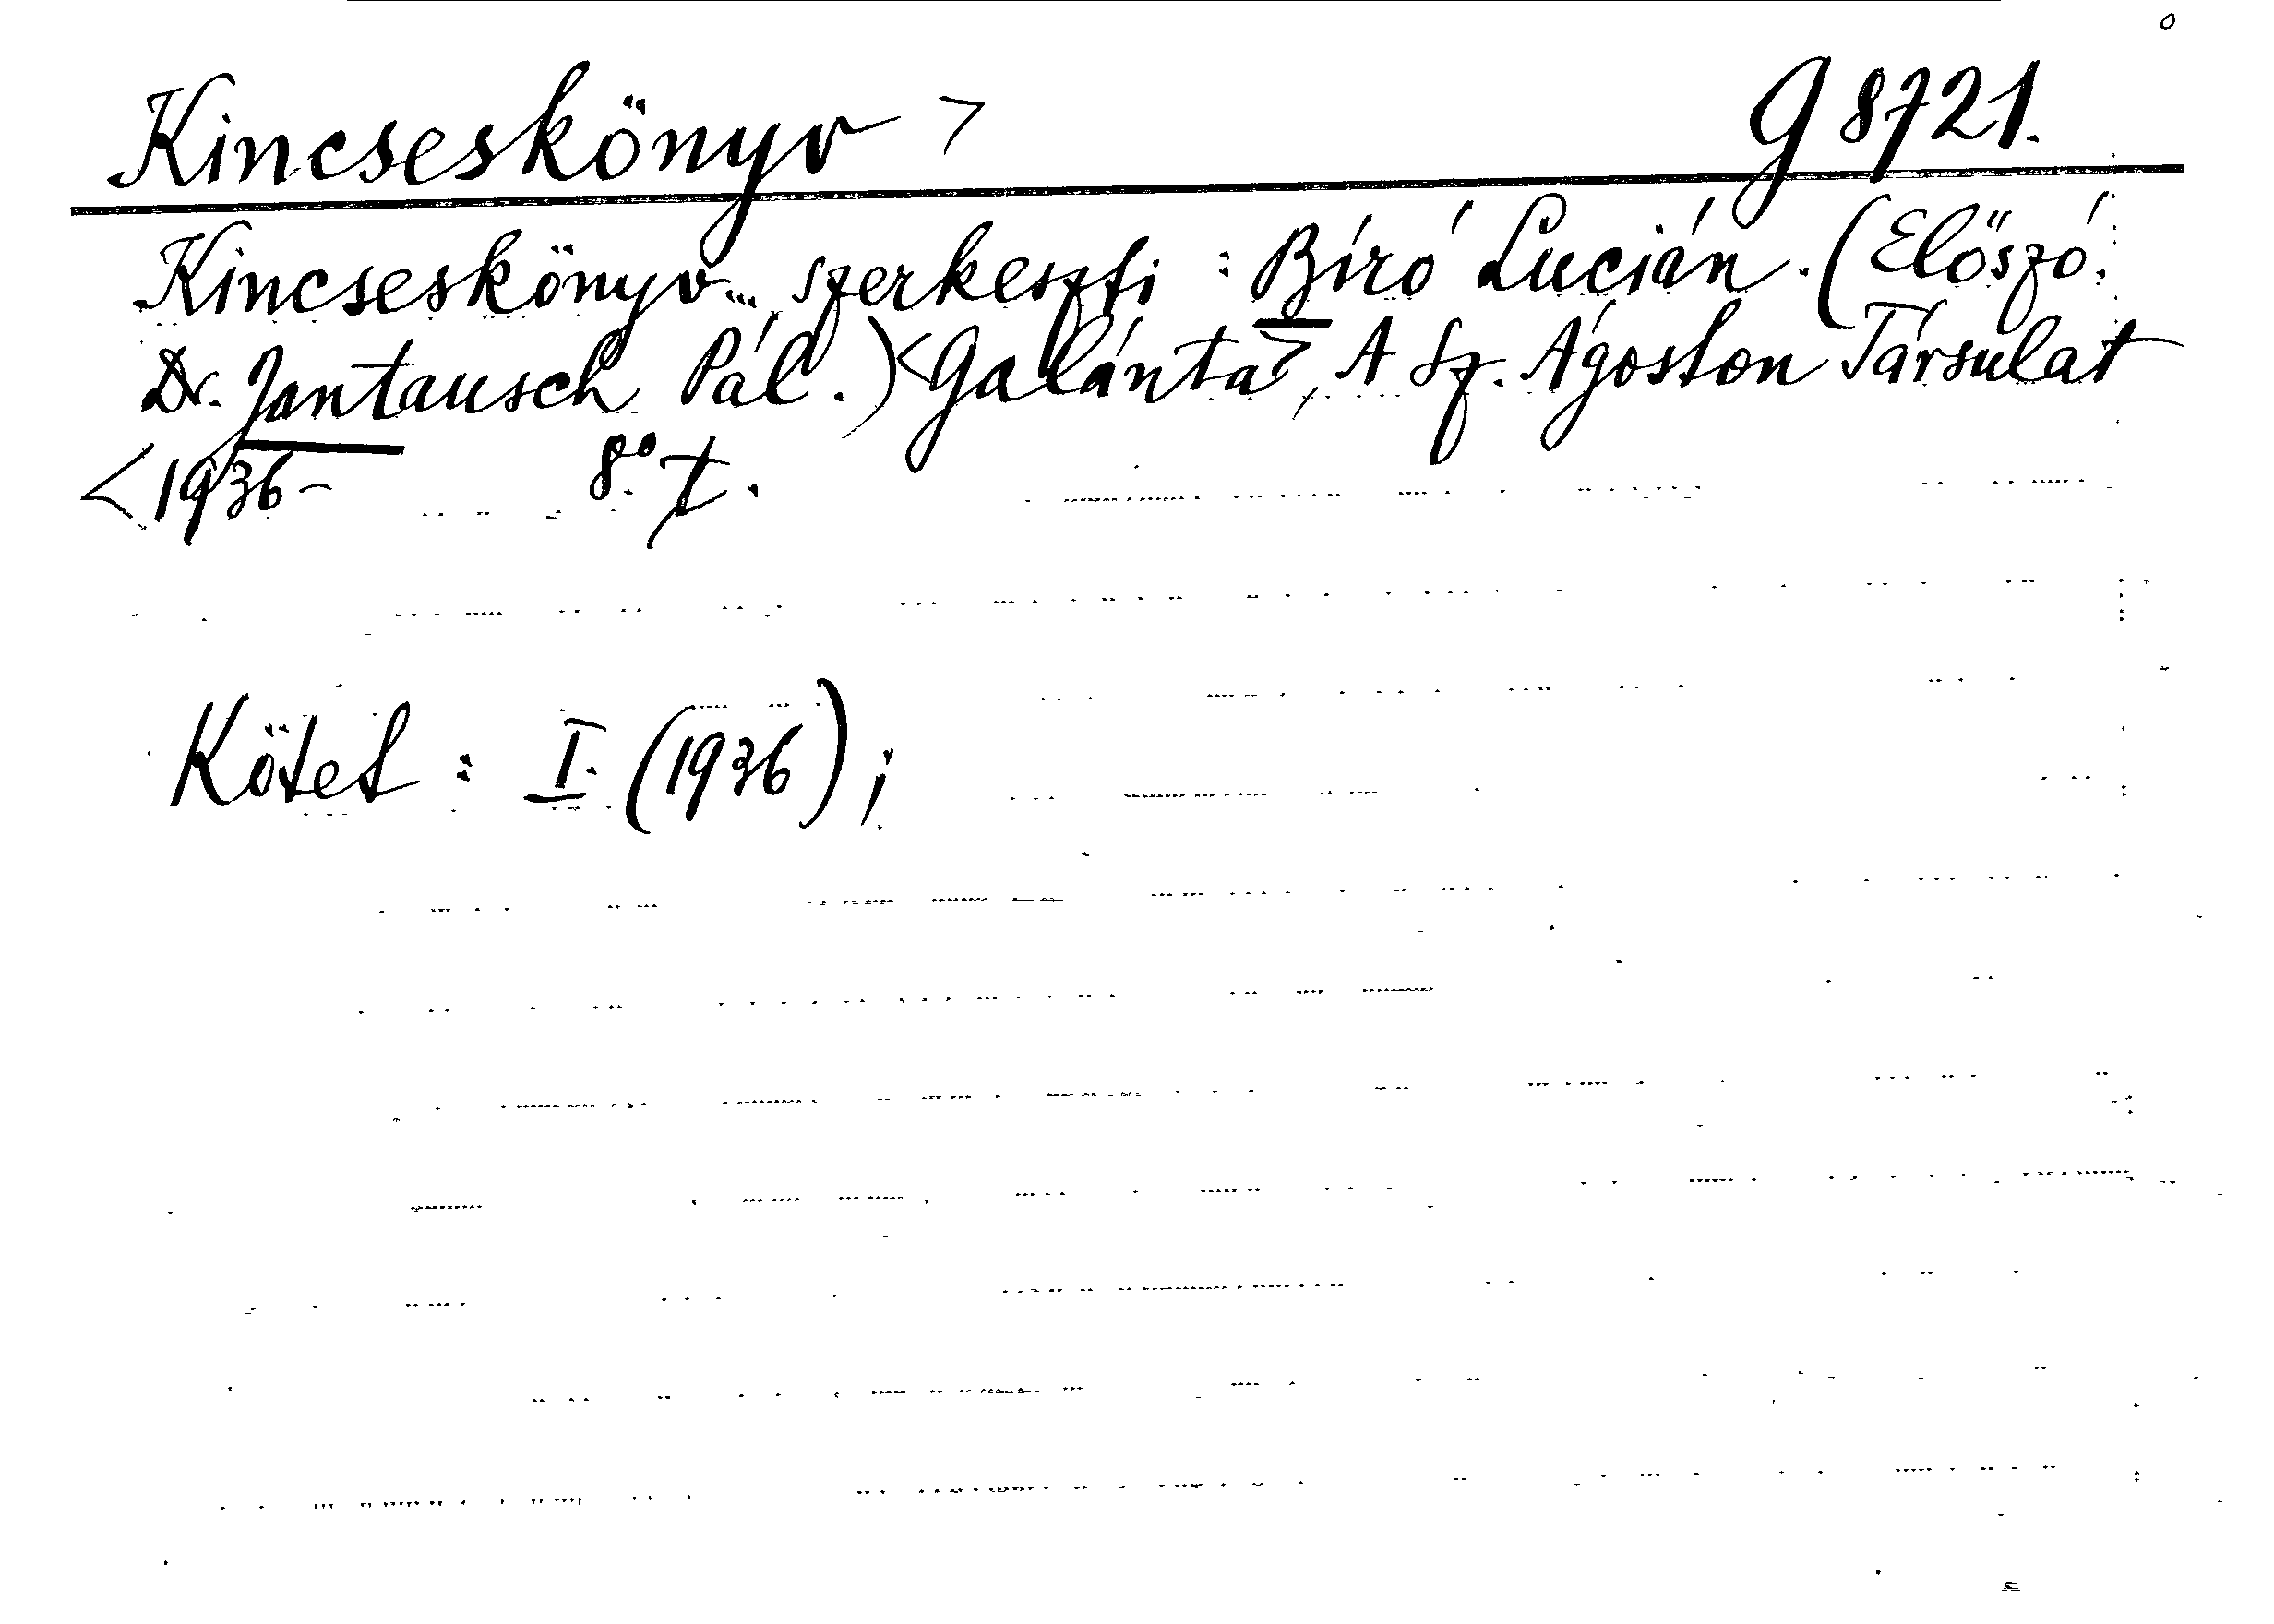 Kincseskönyv > G 8721.
Kincseskönyv... szerkeszti : Bíró Lucián. (Előszó:
Dr. Jantausch Pál.) <Galánta>, A Sz. Ágoston Társulat
<1936- 8° t.
Kötet : I. (1936) ;